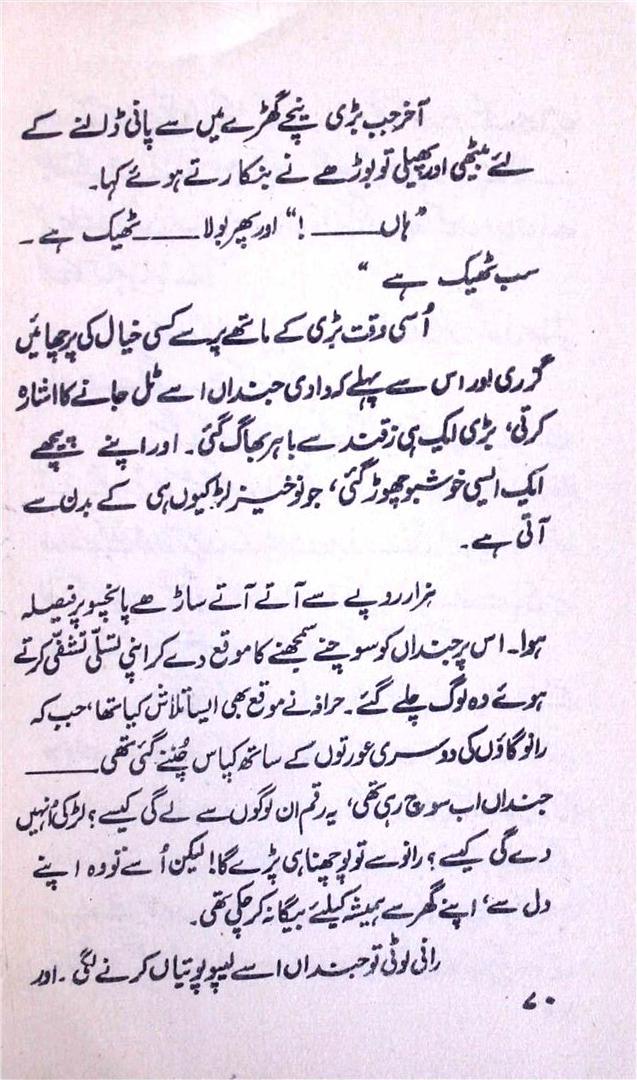 آخر جب بڑی نیچے گھڑے میں سے پانی ڈالنے کے
لئے بیٹھی اور پھیلی تو بوڑھے نے ہنکارتے ہوئے کہا۔
”ہاں ——— !“ اور پھر بولا ——— ٹھیک ہے ۔
سب ٹھیک ہے “
اُسی وقت بڑی کے ماتھے پر سے کسی خیال کی پرچھائیں
گزری اور اس سے پہلے کہ دادی جنداں اسے ٹل جانے کا اشارہ
کرتی، بڑی ایک ہی زقند سے باہر بھاگ گئی۔ اور اپنے پیچھے
ایک ایسی خوشبو چھوڑ گئی، جو نوخیز لڑکیوں ہی کے بدن سے
آتی ہے ۔
ہزار روپے سے آتے آتے ساڑھے پانچسو پر فیصلہ
ہوا۔ اس پر جنداں کو سوچنے سمجھنے کا موقع دے کر اپنی تسلّی تشفّی کرتے
ہوئے وہ لوگ چلے گئے ۔ حرافہ نے موقع بھی ایسا تلاش کیا تھا، جب کہ
رانو گاؤں کی دوسری عورتوں کے ساتھ کپاس چُننے گئی تھی ———
جنداں اب سوچ رہی تھی، یہ رقم ان لوگوں سے لے گی کیسے؟ لڑکی اُنہیں
دے گی کیسے؟ رانو سے تو پوچھنا ہی پڑے گا! لیکن اُسے تو وہ اپنے
دل سے، اپنے گھر سے ہمیشہ کیلئے بیگانہ کر چکی تھی۔
رانی لوٹی تو جنداں اسے لیپو پوتیاں کرنے لگی ۔ اور
۷۰